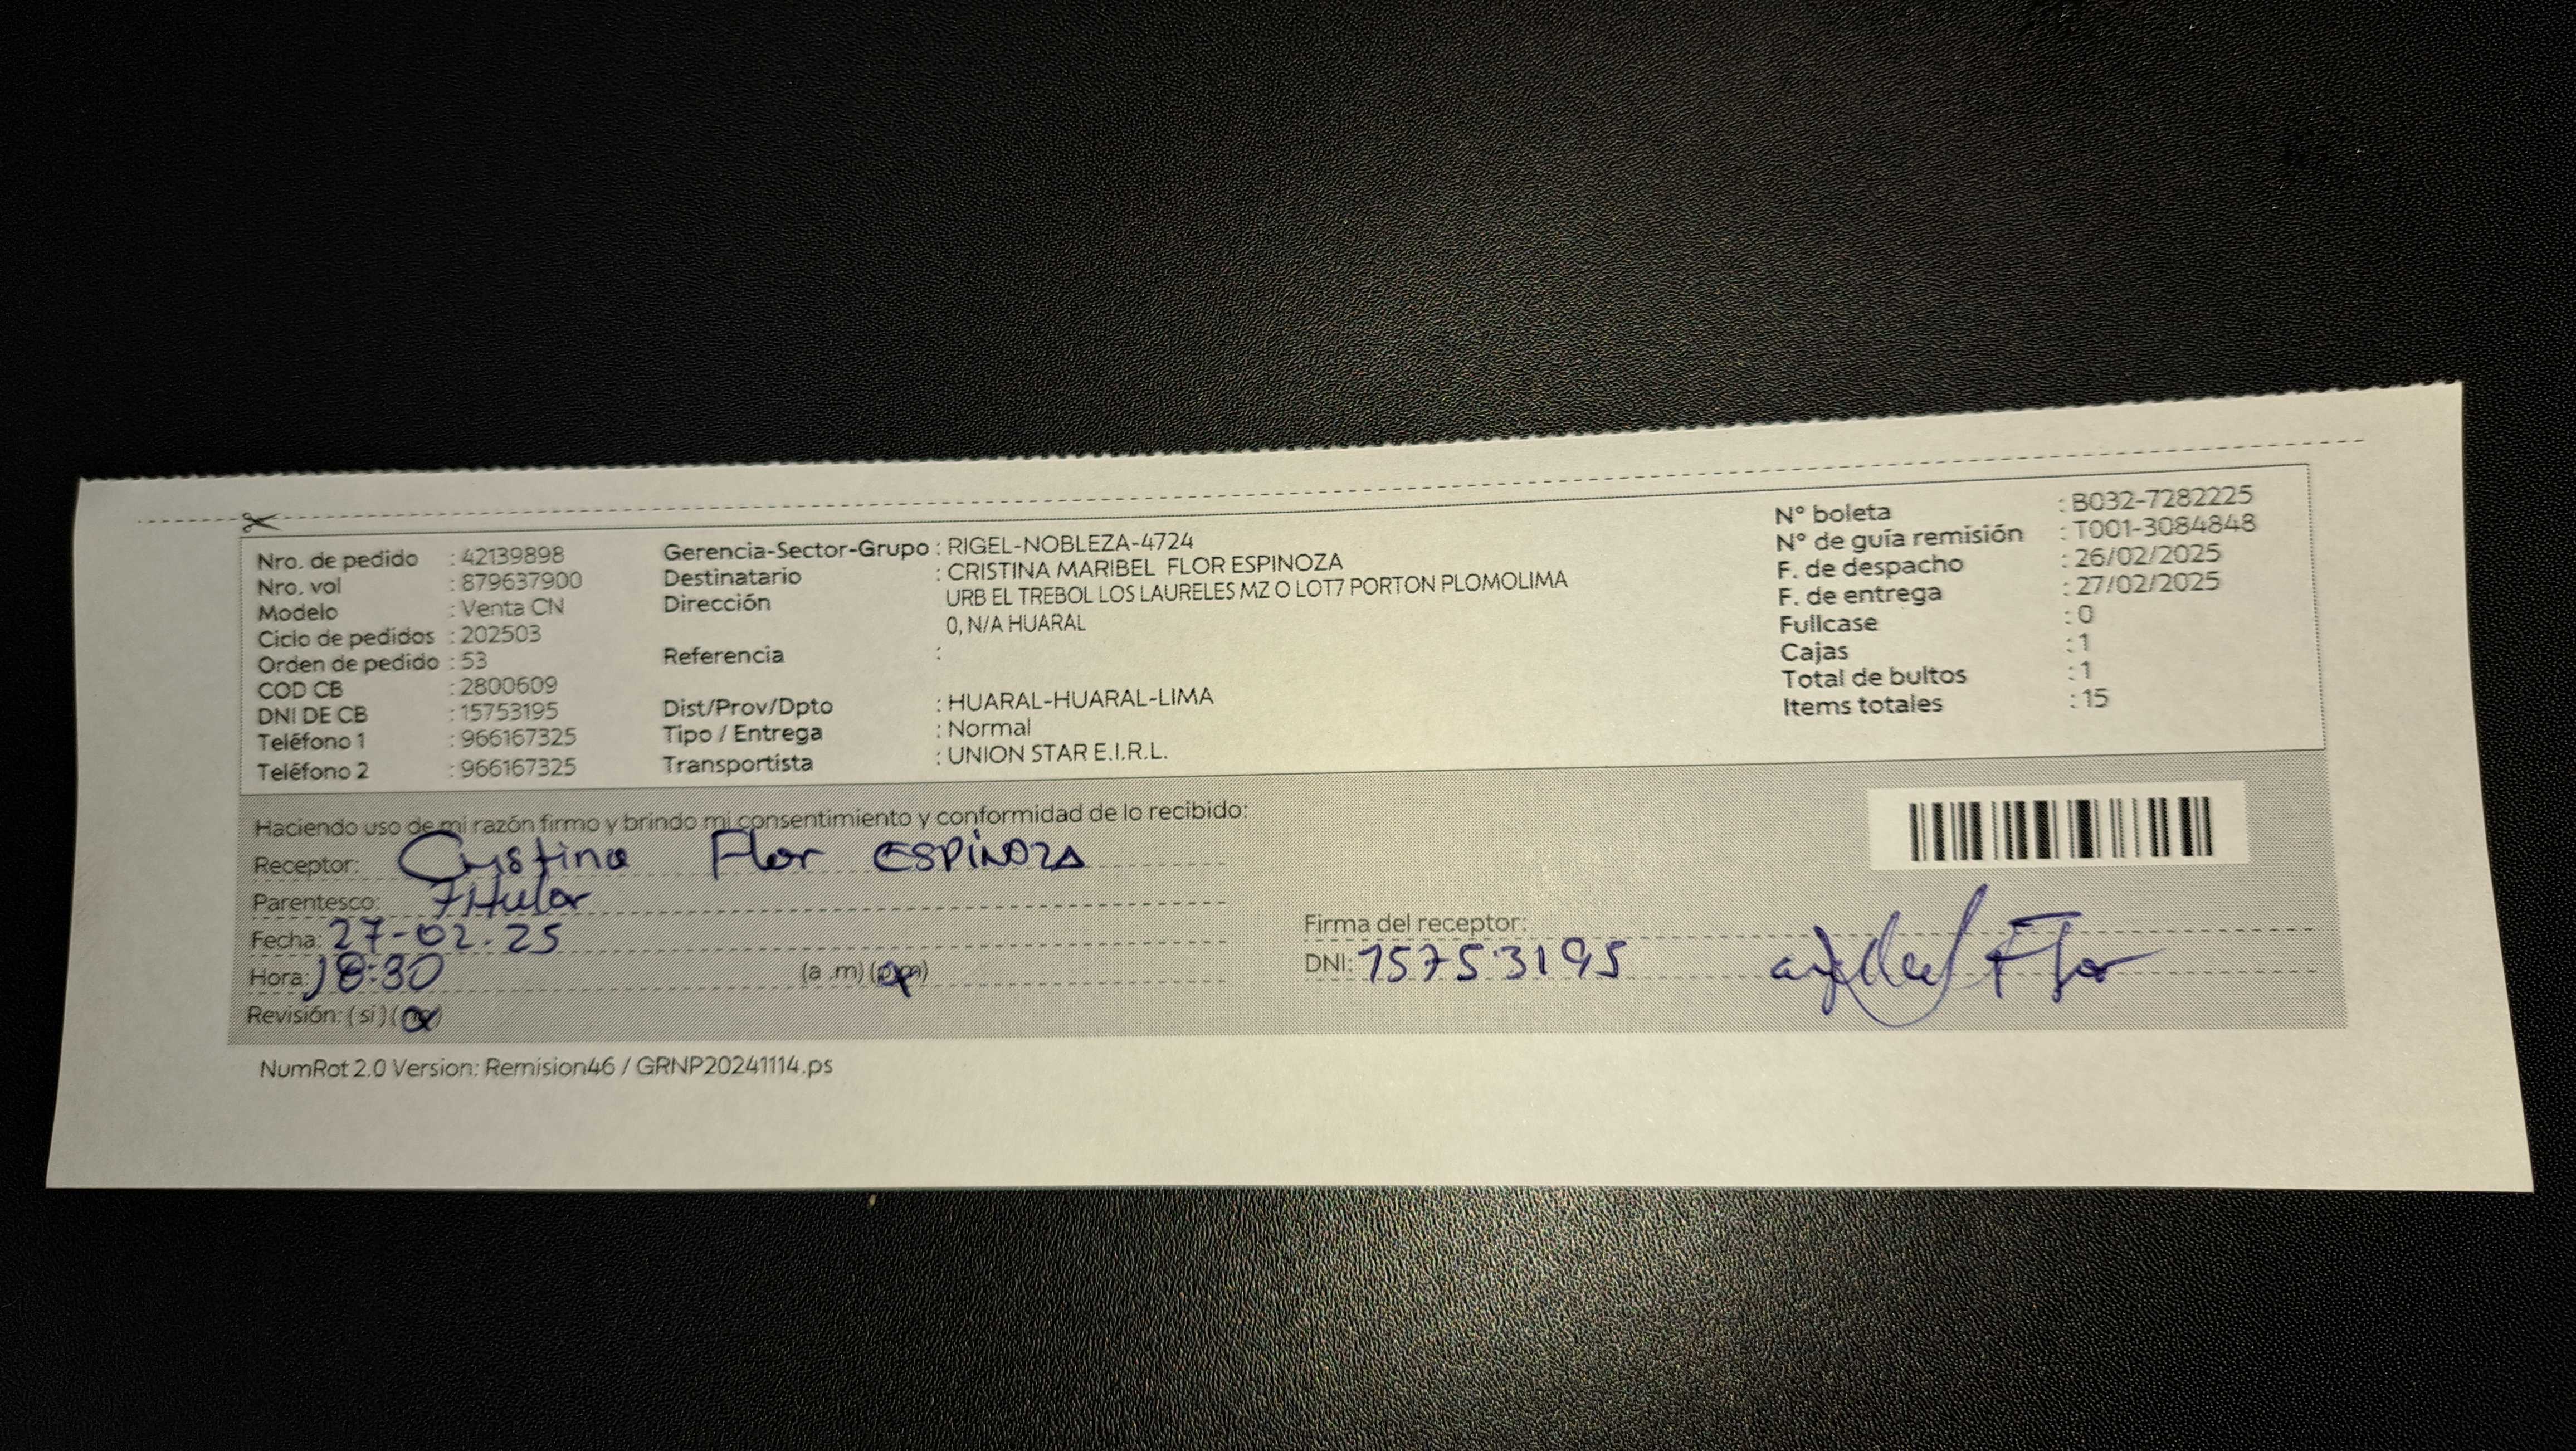 Nro. de pedido : 42139898
Nro. vol : 879637900
Modelo : Venta CN
Ciclo de pedidos : 202503
Orden de pedido : 53
COD CB : 2800609
DNI DE CB : 15753195
Teléfono 1 : 966167325
Teléfono 2 : 966167325
Gerencia-Sector-Grupo : RIGEL-NOBLEZA-4724
Destinatario : CRISTINA MARIBEL FLOR ESPINOZA
Dirección URB EL TREBOL LOS LAURELES MZ O LOT7 PORTON PLOMOLIMA
0, N/A HUARAL
Referencia :
Dist/Prov/Dpto : HUARAL-HUARAL-LIMA
Tipo / Entrega : Normal
Transportista : UNION STAR E.I.R.L.
N° boleta : B032-7282225
N° de guía remisión : T001-3084848
F. de despacho : 26/02/2025
F. de entrega : 27/02/2025
Fullcase : 0
Cajas : 1
Total de bultos : 1
Items totales : 15
Haciendo uso de mi razón firmo y brindo mi consentimiento y conformidad de lo recibido:
Receptor: Cristina Flor ESPINOZA
Parentesco: titular
Fecha: 27-02.25
Hora: 18:30 (a .m) (p.m)
Revisión: ( si ) ( no )
Firma del receptor:
DNI: 15753195 Flor
NumRot 2.0 Version: Remision46 / GRNP20241114.ps